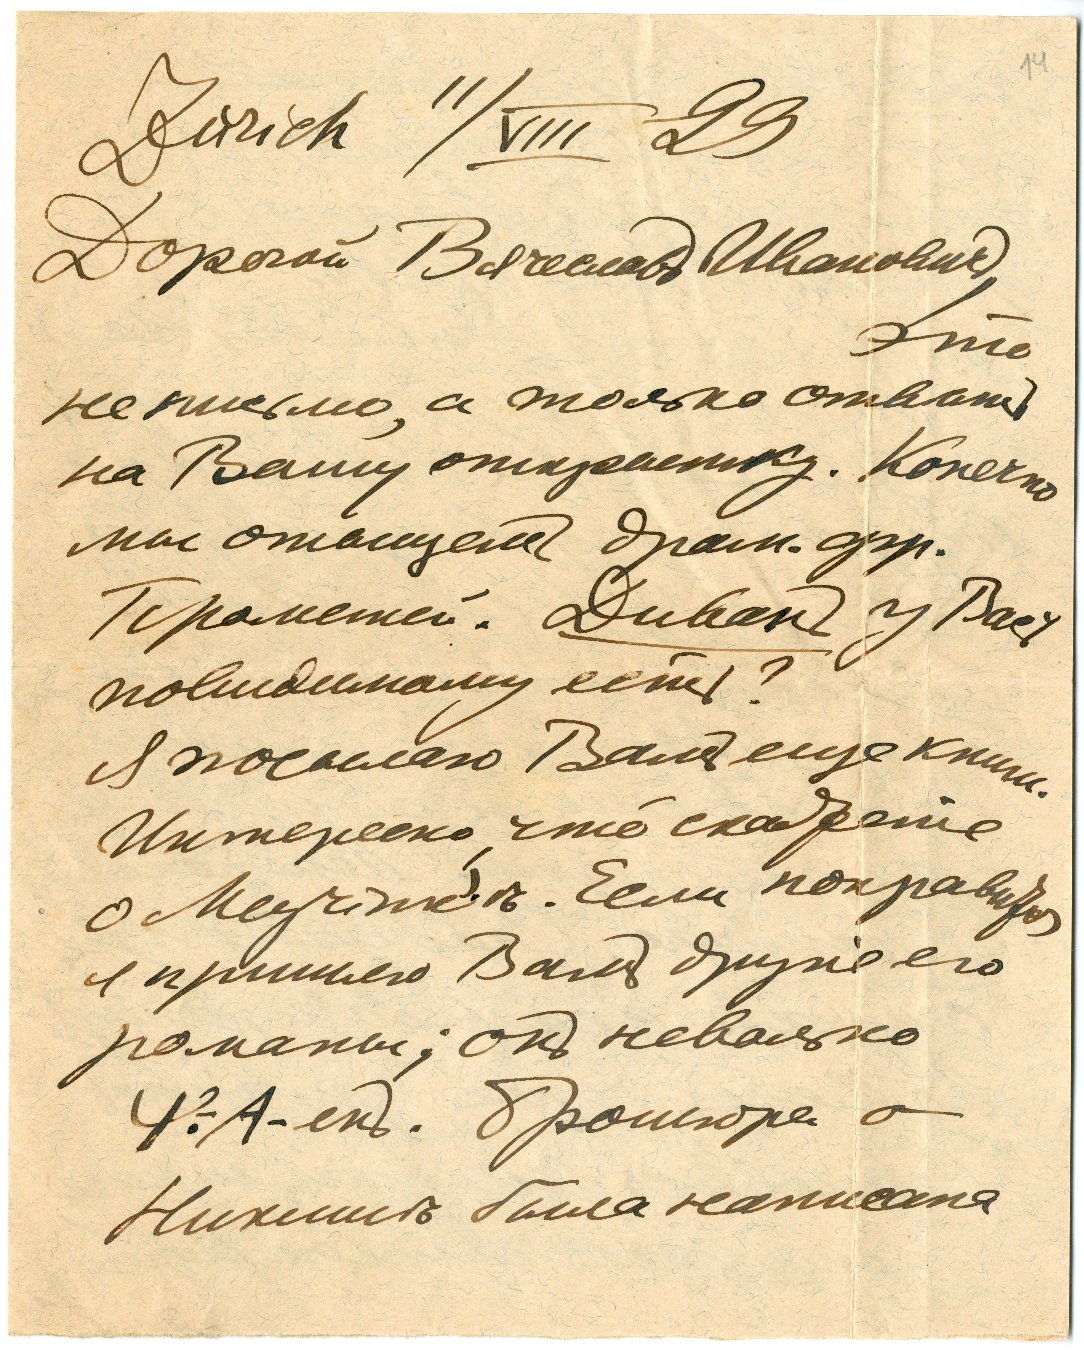 14
Zürich 11/VIII 29
Дорогой Вячеславъ Ивановичъ,
Это
не письмо, а только отвѣтъ
на Вашу открытку. Конечно
мы отыщемъ драм. фр.
Прометей. Диванъ у Васъ
повидимому есть?
Я посылаю Вамъ еще книги.
Интересно, что скажете
о Мейринкѣ. Если понравится
я пришлю Вамъ другіе его
романы; онъ невольно
А-екъ. Брошюра о
Никишѣ была написана